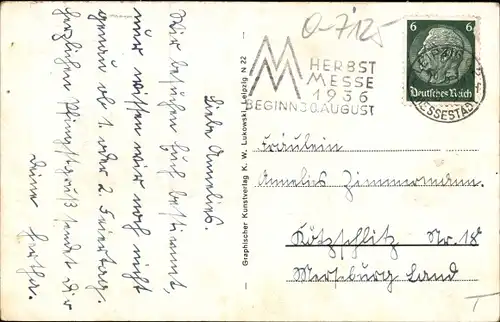 O-7125
6
Deutsches Reich
MESSESTADT
HERBST
MESSE
1936
BEGINN 30. AUGUST
Liebe Annelies.
Wir besuchen Euch bestimmt,
nur wissen wir noch nicht
genau ob 1. oder 2. Feiertag.
Herzlichen Pfingstgruß sendet Dir
Deine Hertha.
Graphischer Kunstverlag K. W. Lukowski, Leipzig N 22
Fräulein
Annelies Zimmermann.
Kötzschlitz Nr. 18
Merseburg Land